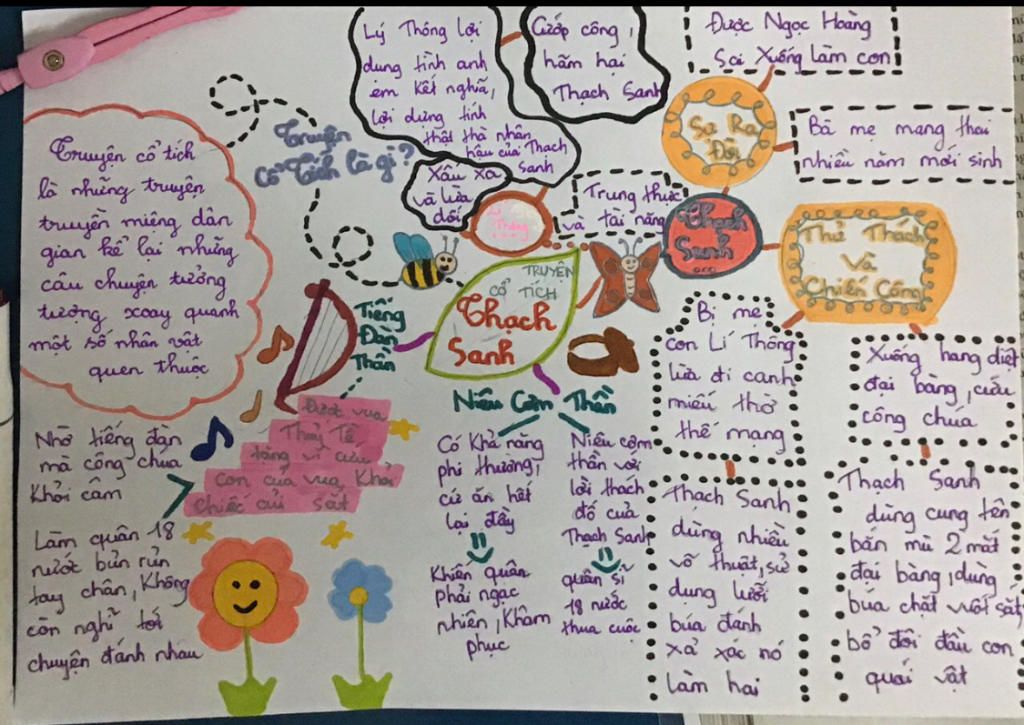 Truyện
Cổ Tích là gì?
Truyện cổ tích
là những truyện
truyền miệng dân
gian kể lại những
câu chuyện tưởng
tượng xoay quanh
một số nhân vật
quen thuộc
TRUYỆN
CỔ TÍCH
Thạch
Sanh
Lý
Thông
Lý Thông lợi
dụng tình anh
em kết nghĩa,
lợi dụng tính
thật thà nhân
hậu của Thạch
Sanh
Cướp công,
hãm hại
Thạch Sanh
Xấu xa
và lừa
dối
Thạch
Sanh
Trung thực
và tài năng
Sự Ra
Đời
Được Ngọc Hoàng
Sai Xuống làm con
Bà mẹ mang thai
nhiều năm mới sinh
Thử Thách
Và
Chiến Công
Bị mẹ
con Lí Thông
lừa đi canh
miếu thờ
thế mạng
Thạch Sanh
dùng nhiều
võ thuật, sử
dụng lưỡi
búa đánh
xả xác nó
làm hai
Xuống hang diệt
đại bàng, cứu
công chúa
Thạch Sanh
dùng cung tên
bắn mù 2 mắt
đại bàng, dùng
búa chặt vuốt sắt,
bổ đôi đầu con
quái vật
Niêu Cơm Thần
Có Khả năng
phi thường,
cứ ăn hết
lại đầy
Khiến quân
phải ngạc
nhiên, Khâm
phục
Niêu cơm
thần với
lời thách
đố của
Thạch Sanh
quân sĩ
18 nước
thua cuộc
Tiếng
Đàn
Thần
Được vua
Thuỷ Tề
tặng vì cứu
con của vua Khỏi
chiếc cũi sắt
Nhờ tiếng đàn
mà công chúa
Khỏi câm
Làm quân 18
nước bủn rủn
tay chân, Không
còn nghĩ tới
chuyện đánh nhau